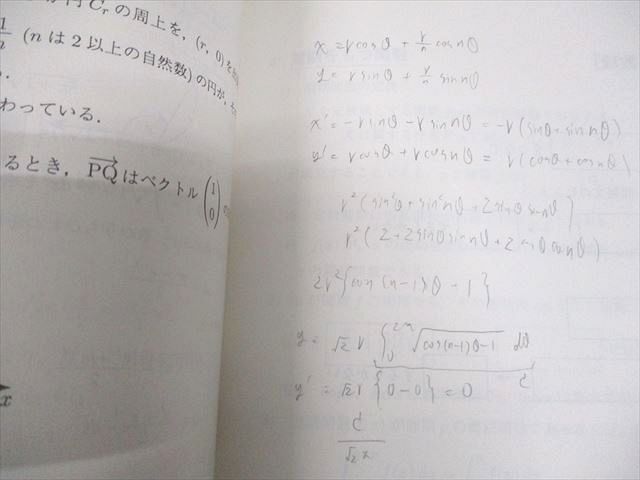 円 Cr の周上を, (r, 0) を
1/n (n は 2 以上の自然数) の円が,
わっている.
るとき, PQ はベクトル (1 0)
x
x = r cosθ + r/n cos nθ
y = r sinθ + r/n sin nθ
x' = -r sinθ - r sin nθ = -r (sinθ + sin nθ)
y' = r cosθ + r cos nθ = r (cosθ + cos nθ)
r² (sin²θ + sin² nθ + 2 sinθ sin nθ)
r² (2 + 2 sinθ sin nθ + 2 cosθ cos nθ)
2r² {cos (n-1)θ - 1}
y = √2 r {∫₀^2π √cos(n-1)θ-1 dθ
y' = √2 r {0 - 0} = 0
√2 x